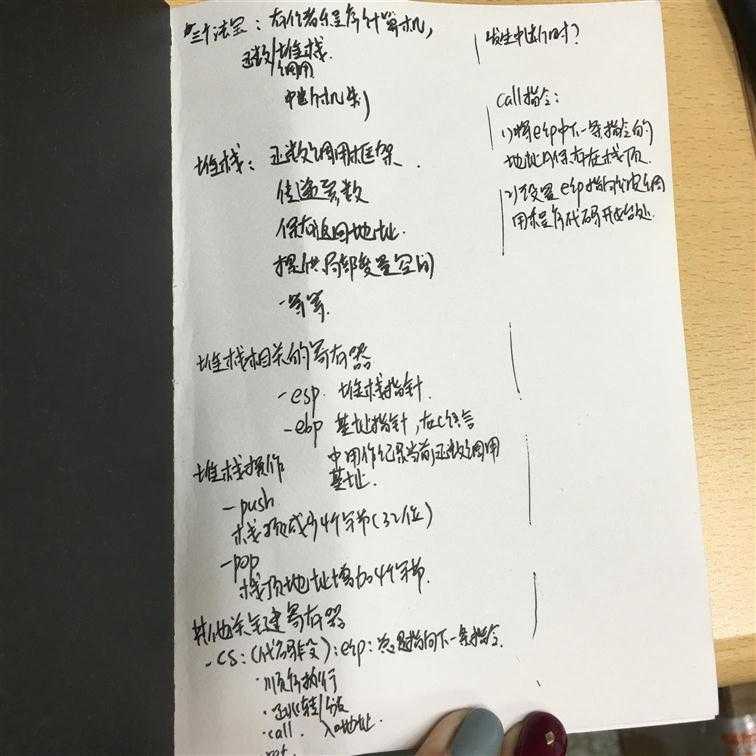 三个法宝：存储程序计算机，
函数调用堆栈
中断机制
堆栈：函数调用框架
传递参数
保存返回地址
提供局部变量空间
-等等
堆栈相关的寄存器
-esp 堆栈指针
-ebp 基址指针，在C语言
中用作记录当前函数调用
基址.
堆栈操作
-push
栈顶减少4个字节(32位)
-pop
栈顶地址增加4个字节.
其他关键寄存器
-CS:(代码段):eip:总是指向下一条指令.
·顺序执行
·跳转/分支
·call. 入口地址.
·ret.
发生中断时？
call指令：
1)将eip中下一条指令的
地址保存在栈顶
2)设置eip指向被调
用程序代码开始处.